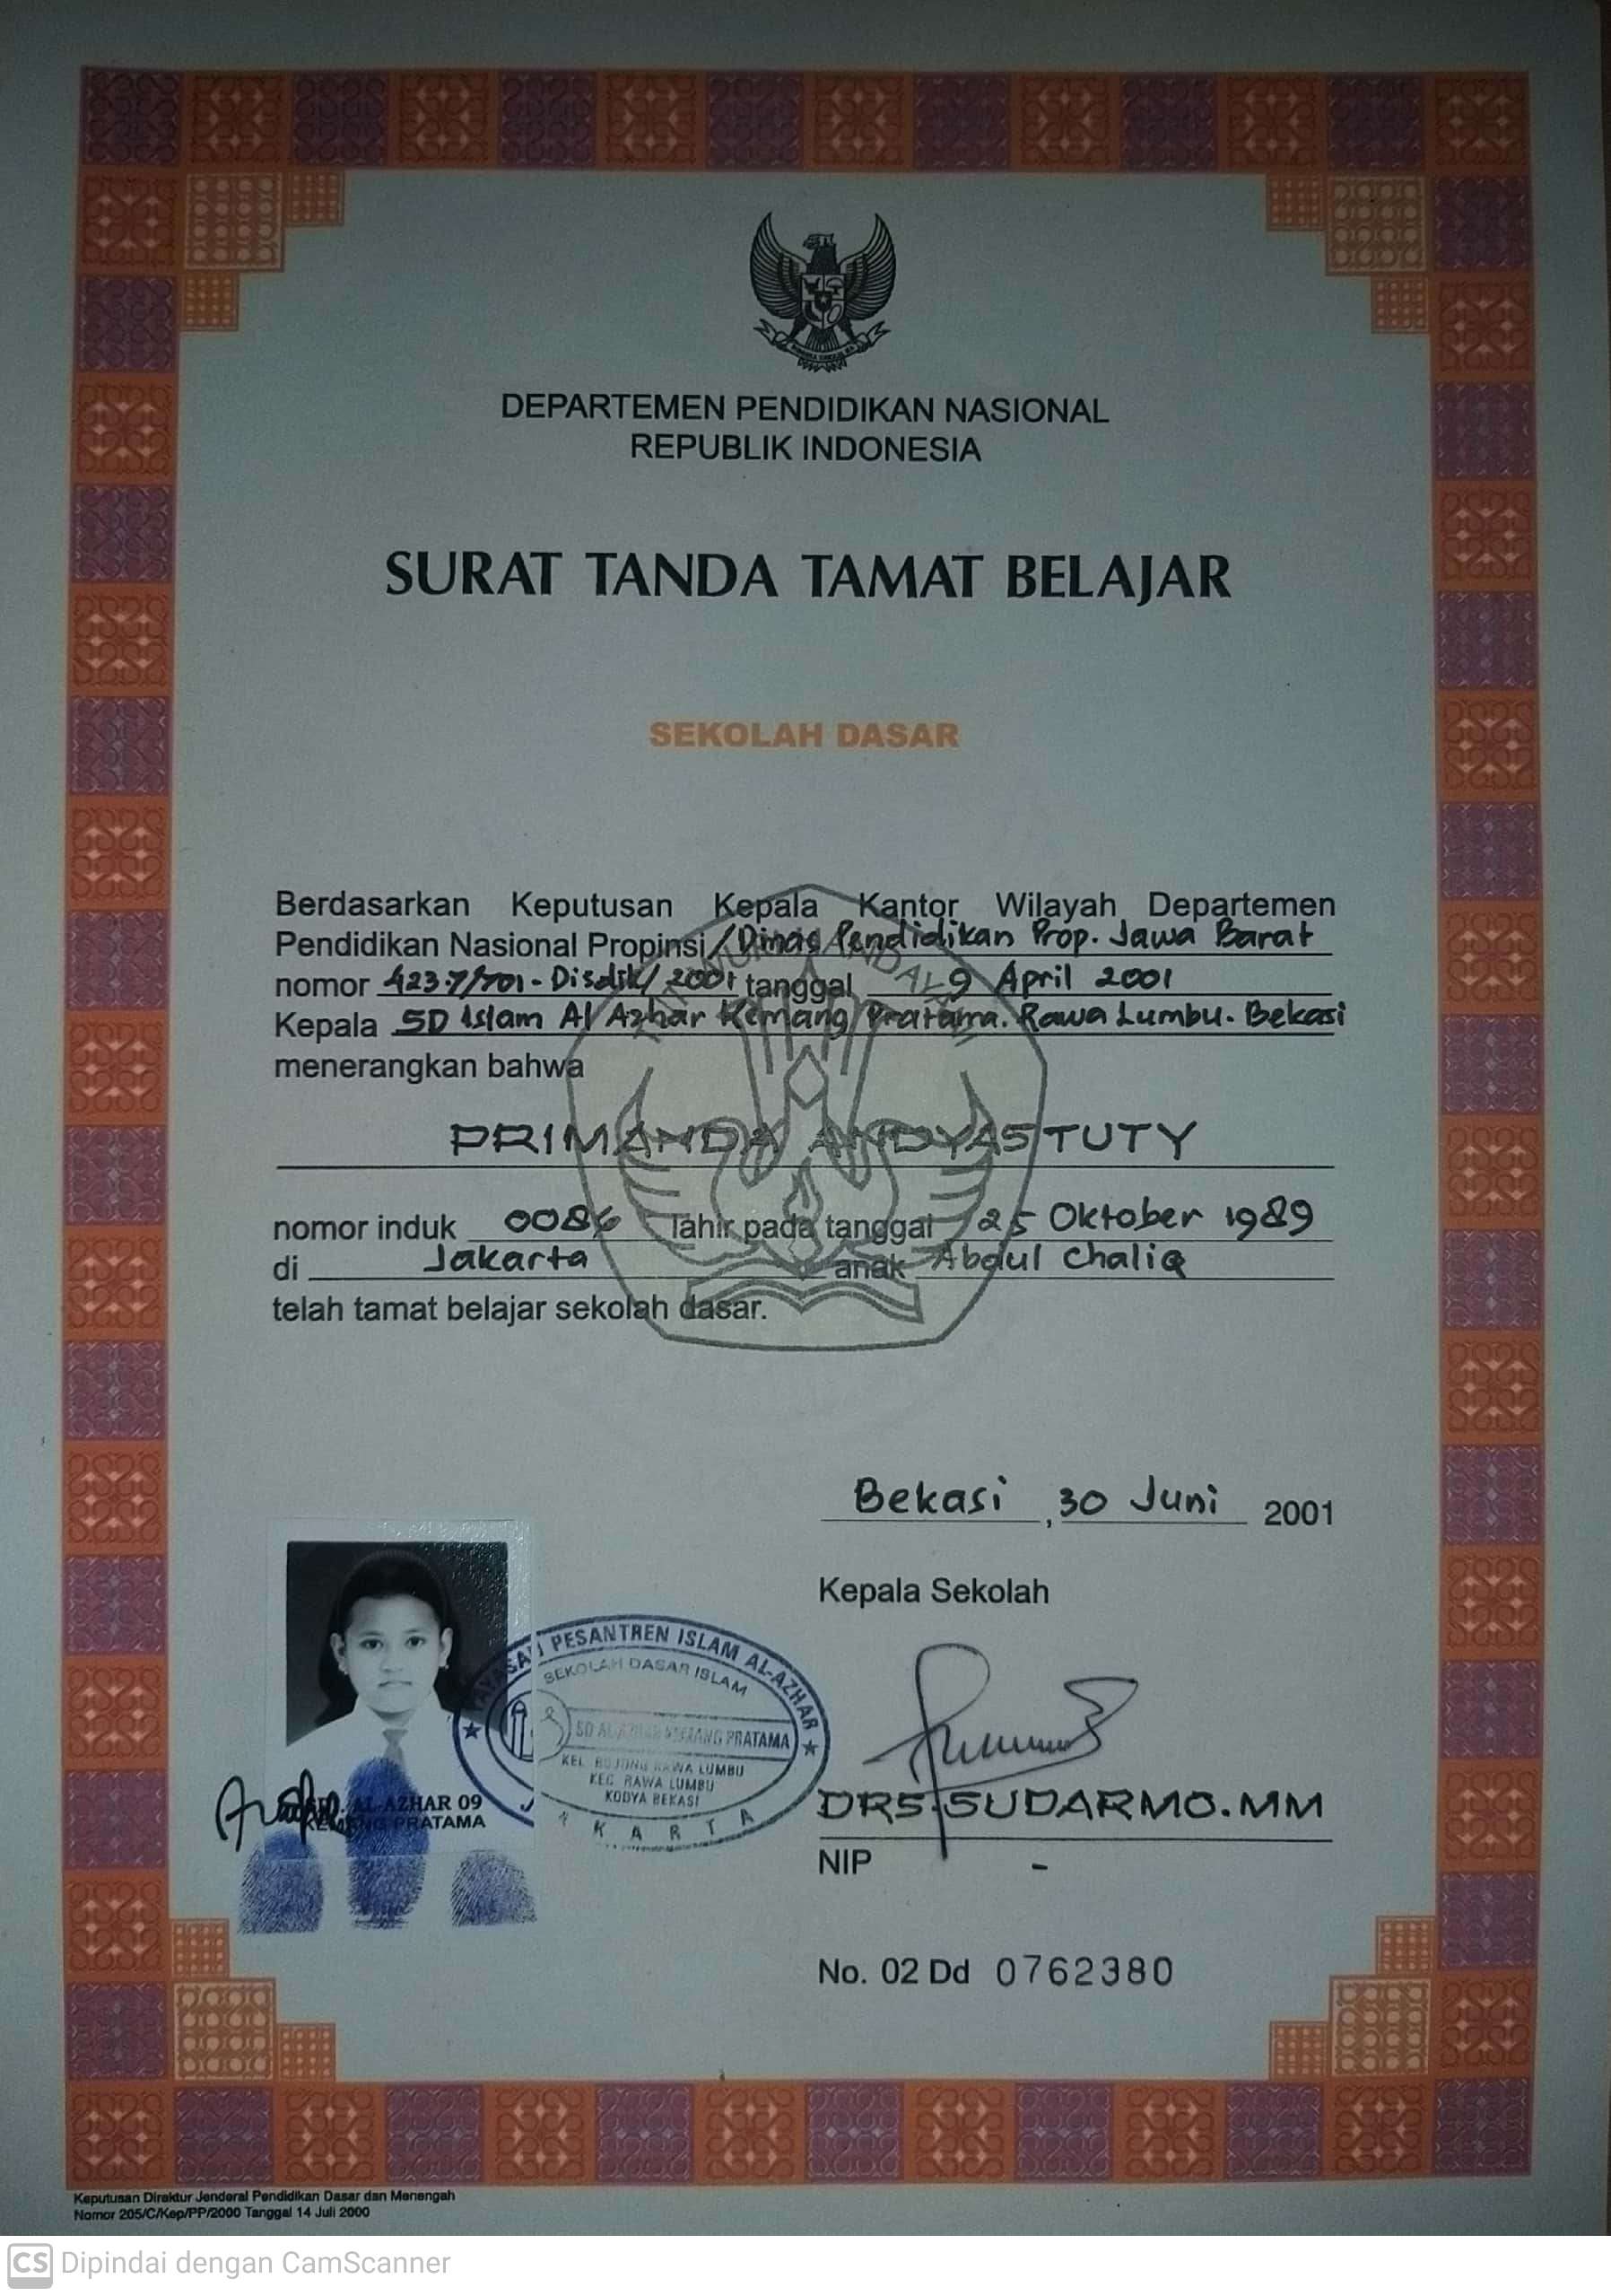 DEPARTEMEN PENDIDIKAN NASIONAL
REPUBLIK INDONESIA
SURAT TANDA TAMAT BELAJAR
SEKOLAH DASAR
Berdasarkan Keputusan Kepala Kantor Wilayah Departemen
Pendidikan Nasional Propinsi/Dinas Pendidikan Prop. Jawa Barat
nomor 423.7/701-Disdik/2001 tanggal 9 April 2001
Kepala SD Islam Al Azhar Kemang Pratama. Rawa Lumbu. Bekasi
menerangkan bahwa
PRIMANDA ANDYASTUTY
nomor induk 0086 lahir pada tanggal 25 Oktober 1989
di Jakarta anak Abdul Chaliq
telah tamat belajar sekolah dasar.
Bekasi, 30 Juni 2001
Kepala Sekolah
PESANTREN ISLAM AL-AZHAR
SEKOLAH DASAR ISLAM
SD AL-AZHAR KEMANG PRATAMA
KEL. BOJONG RAWA LUMBU
KEC. RAWA LUMBU
KODYA BEKASI
AL-AZHAR 09
KEMANG PRATAMA
DRS. SUDARMO. MM
NIP -
No. 02 Dd 0762380
Keputusan Direktur Jenderal Pendidikan Dasar dan Menengah
Nomor 205/C/Kep/PP/2000 Tanggal 14 Juli 2000
CS Dipindai dengan CamScanner